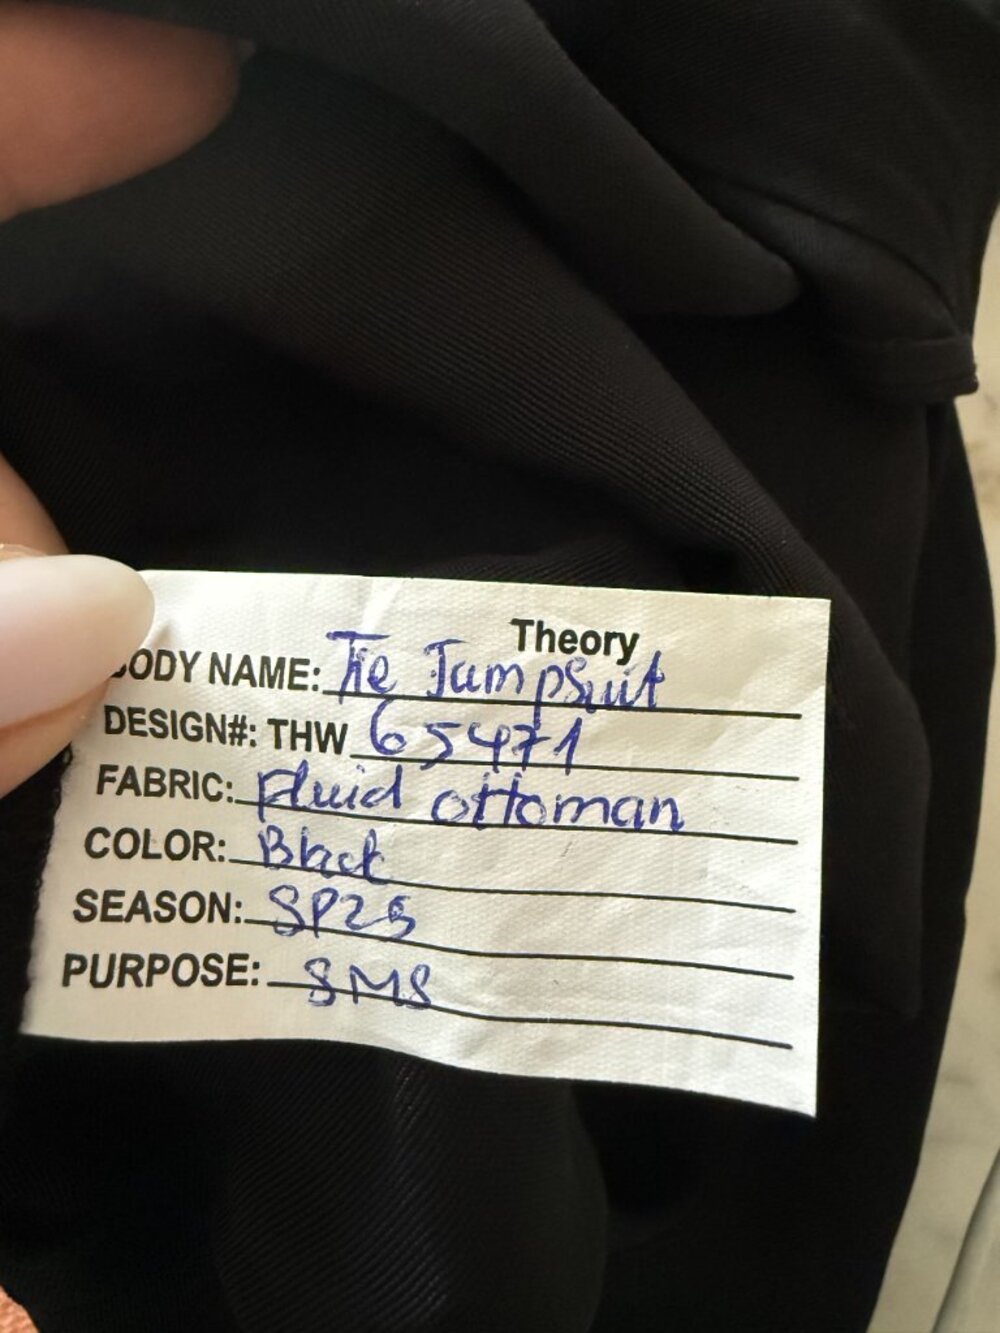 Theory
BODY NAME: Tie Jumpsuit
DESIGN#: THW 65471
FABRIC: Fluid ottoman
COLOR: Black
SEASON: SP25
PURPOSE: SMS